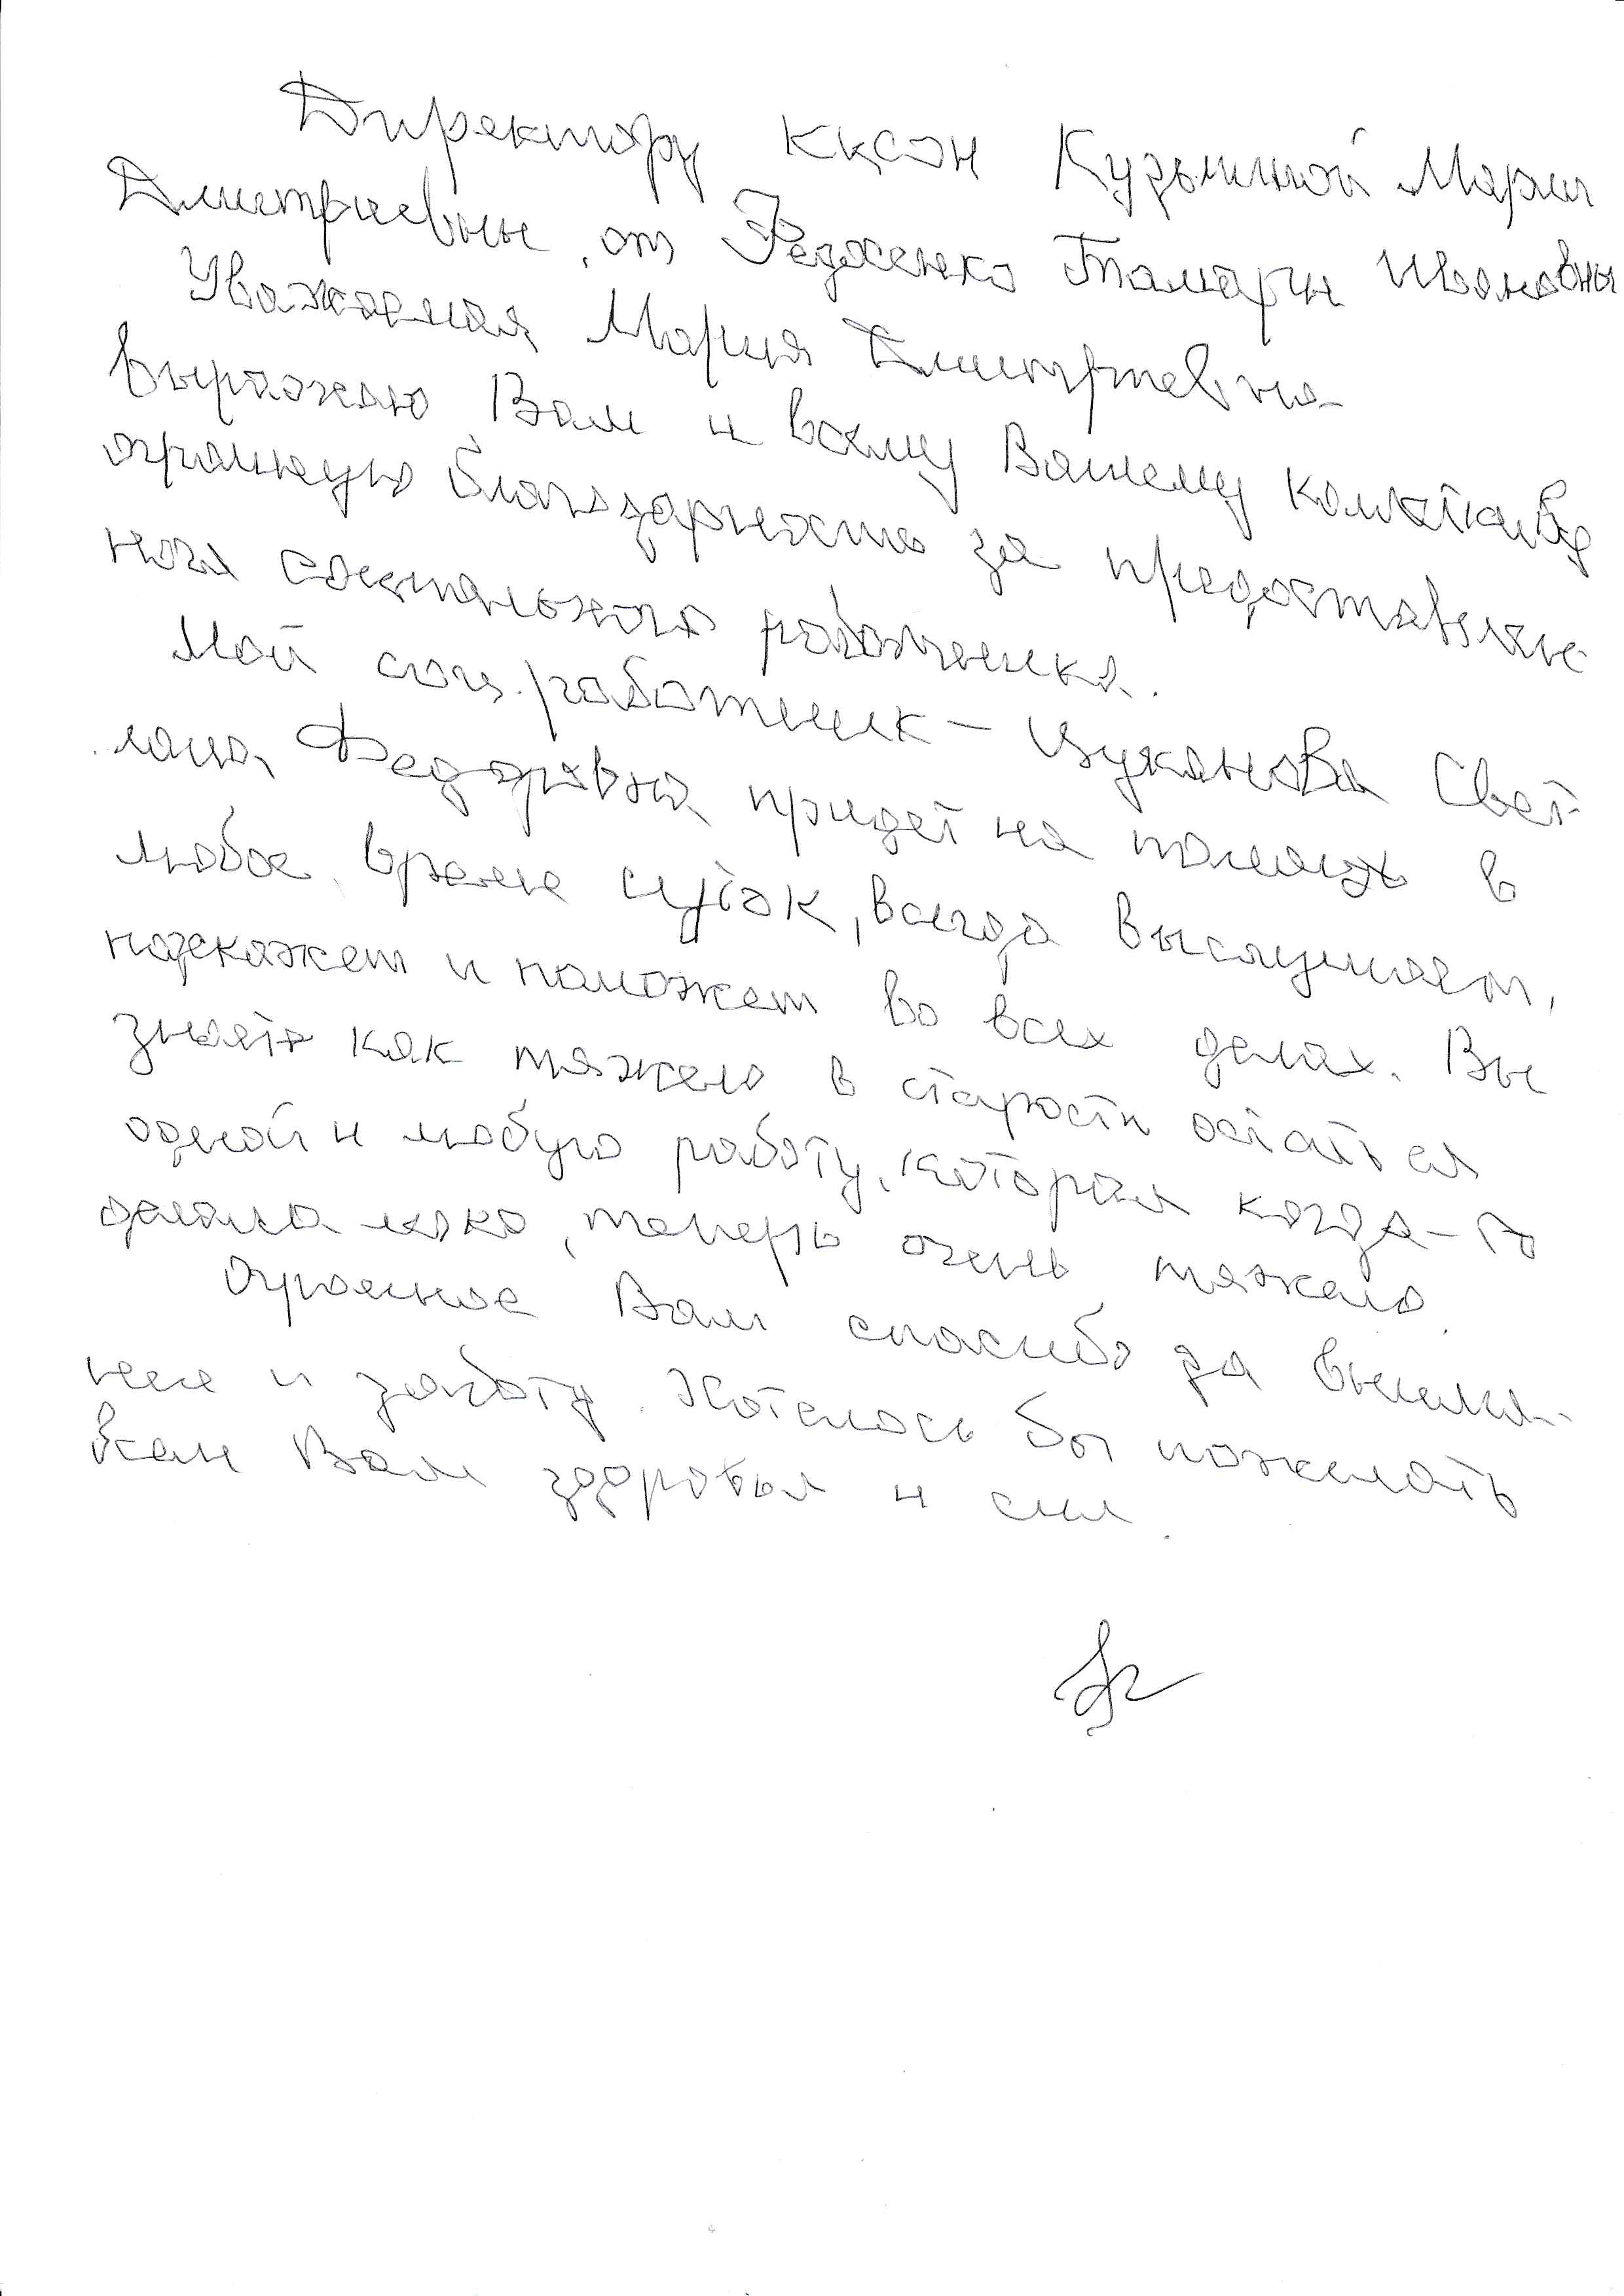 Директору КЦСОН Кузьминой Марии
Дмитриевны, от Редженко Тамары Ивановны
Уважаемая Мария Дмитриевна
выражаю Вам и всему Вашему коллективу
огромную благодарность за предоставлене
ного социального работника.
Мой соц. работник – Цуканова Свет-
лана Федоровна придет на помощь в
любое время суток, всегда выслушает,
подскажет и поможет во всех делах. Вы
знаете как тяжело в старости остаться
одной и любую работу, которая когда-то
делала легко, теперь очень тяжело.
Огромное Вам спасибо за внима-
ние и заботу. Хотелось бы пожелать
всем Вам здоровья и сил.